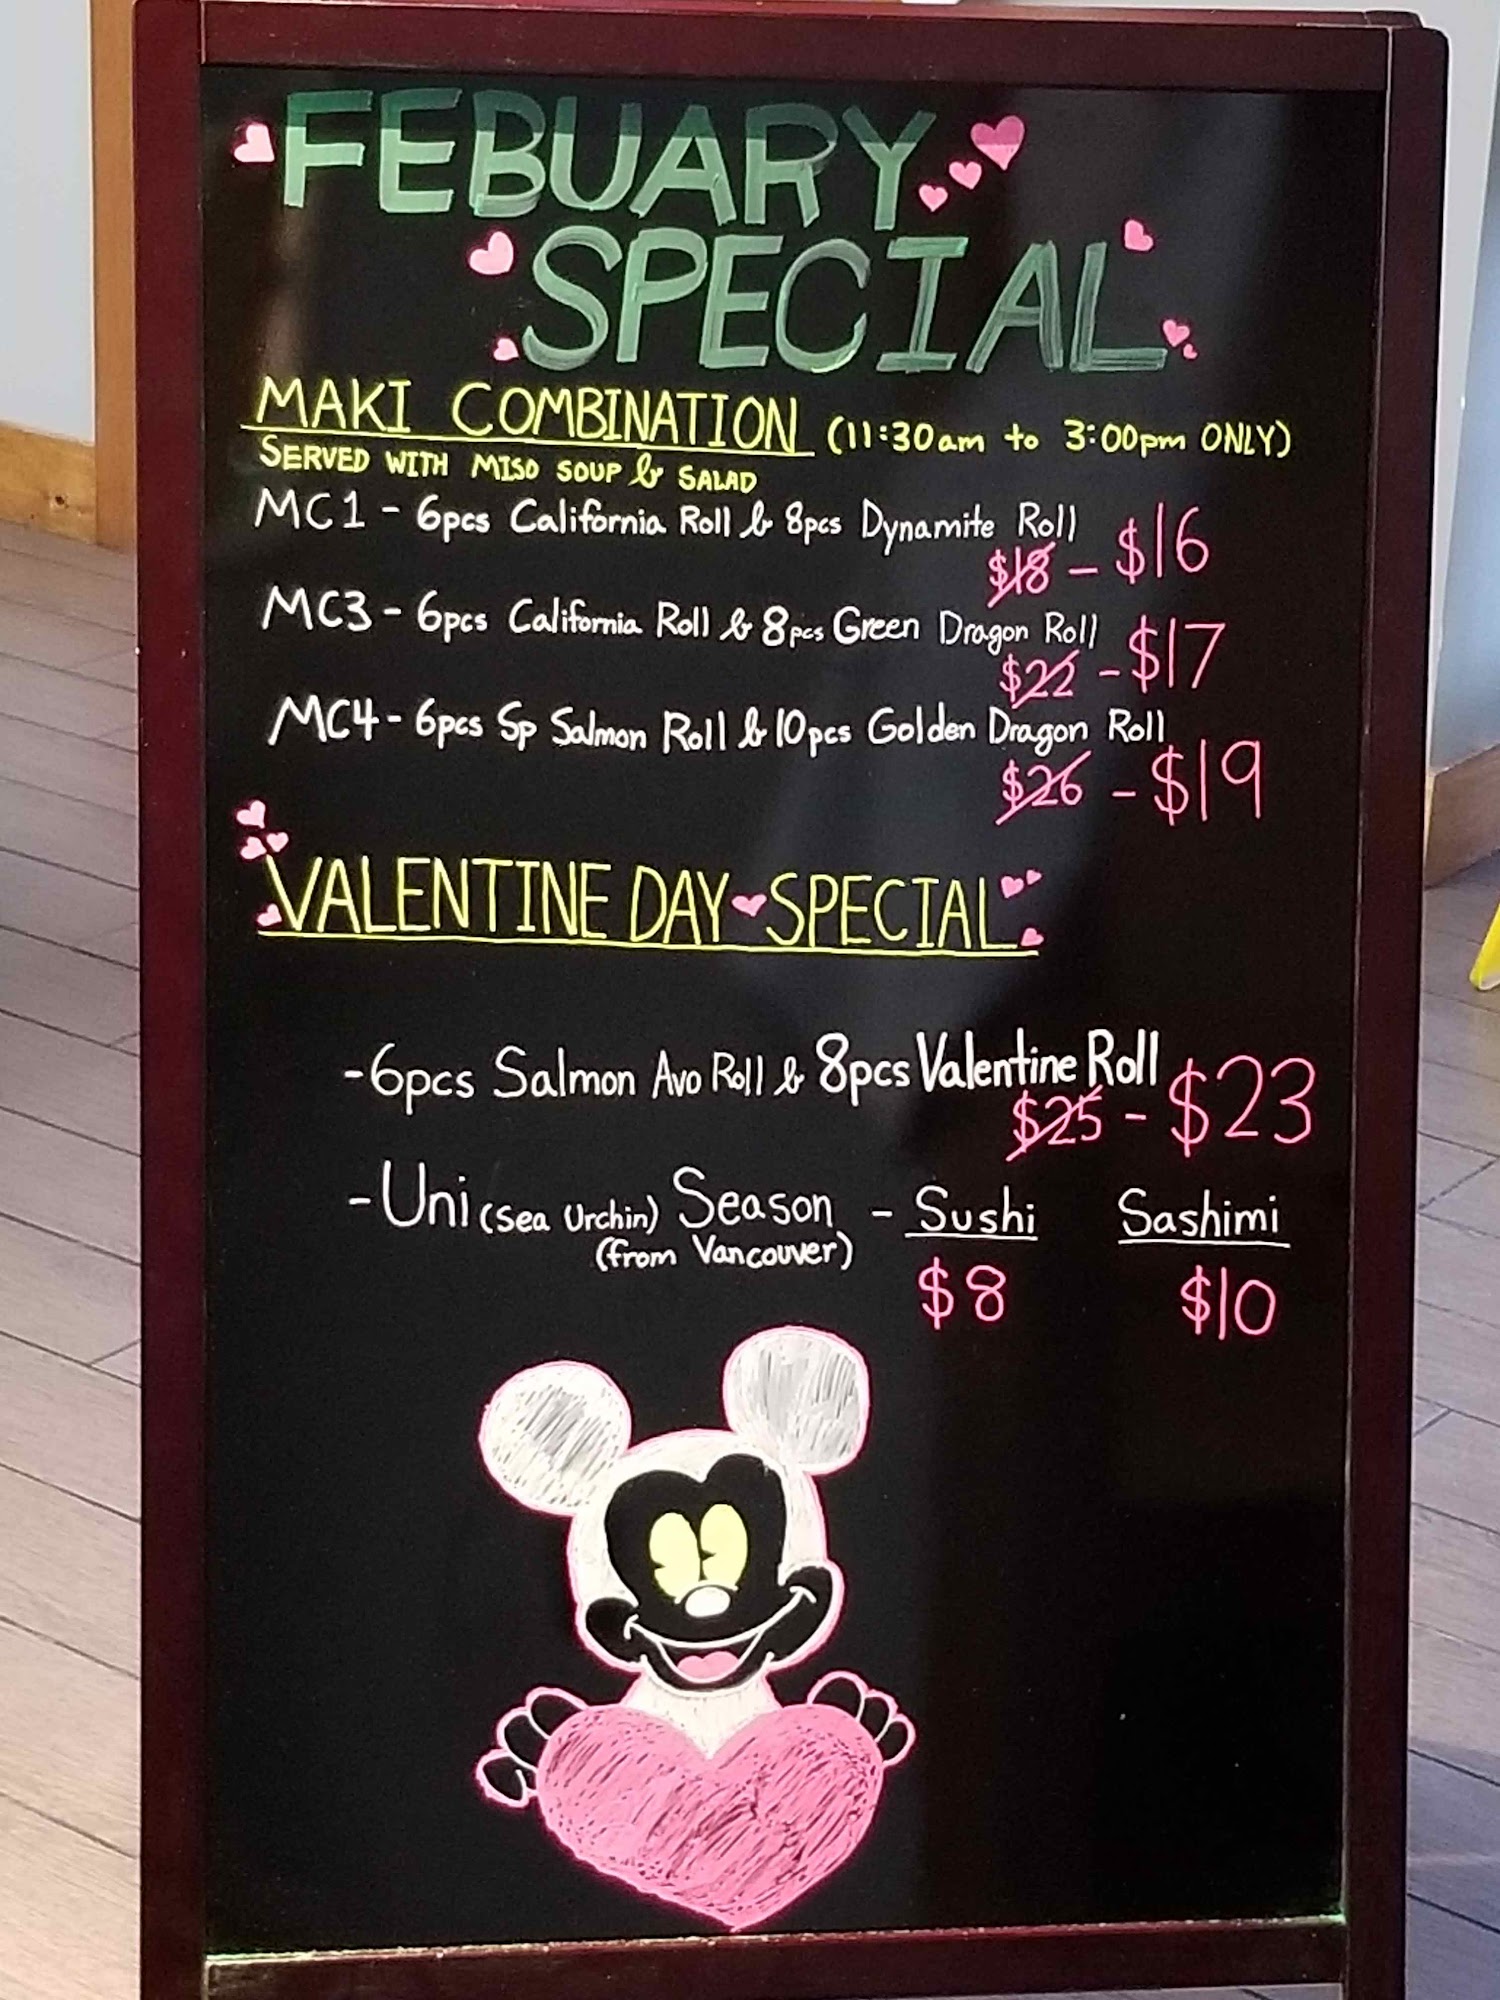 FEBUARY
SPECIAL
MAKI COMBINATION (11:30am to 3:00pm ONLY)
SERVED WITH MISO SOUP & SALAD
MC1 - 6pcs California Roll & 8pcs Dynamite Roll
$18 - $16
MC3 - 6pcs California Roll & 8pcs Green Dragon Roll
$22 - $17
MC4 - 6pcs Sp Salmon Roll & 10pcs Golden Dragon Roll
$26 - $19
VALENTINE DAY SPECIAL
- 6pcs Salmon Avo Roll & 8pcs Valentine Roll
$25 - $23
- Uni (Sea Urchin) Season - Sushi Sashimi
(from Vancouver)
$8 $10